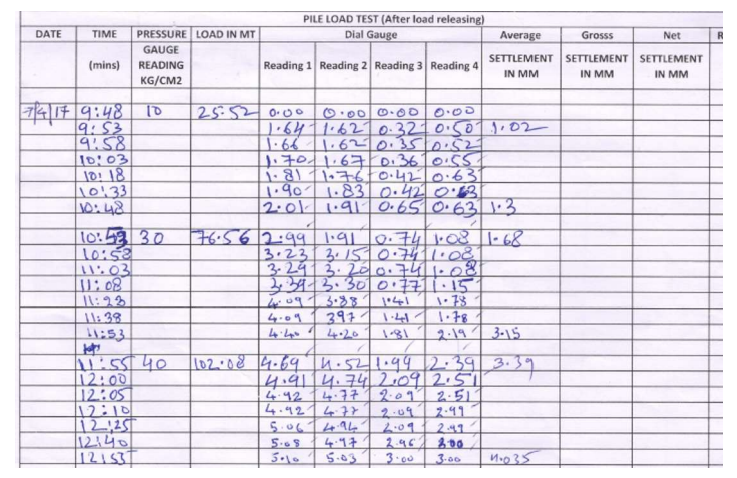 PILE LOAD TEST (After load releasing)
DATE TIME PRESSURE LOAD IN MT Dial Gauge Average Grosss Net R
(mins) GAUGE READING KG/CM2 Reading 1 Reading 2 Reading 3 Reading 4 SETTLEMENT IN MM SETTLEMENT IN MM SETTLEMENT IN MM
7/4/17 9:48 10 25.52 0.00 0.00 0.00 0.00
9:53 1.64 1.62 0.32 0.50 1.02
9:58 1.66 1.62 0.35 0.52
10:03 1.70 1.67 0.36 0.55
10:18 1.81 1.76 0.42 0.63
10:33 1.90 1.83 0.42 0.63
10:48 2.01 1.91 0.65 0.63 1.3
10:53 30 76.56 2.99 1.91 0.74 1.08 1.68
10:58 3.23 3.15 0.74 1.08
11:03 3.29 3.20 0.74 1.08
11:08 3.39 3.30 0.77 1.15
11:23 4.09 3.88 1.41 1.78
11:38 4.09 397 1.41 1.78
11:53 4.40 4.20 1.81 2.19 3.15
11:55 40 102.08 4.69 4.52 1.94 2.39 3.39
12:00 4.91 4.74 2.09 2.51
12:05 4.92 4.77 2.09 2.51
12:10 4.92 4.77 2.09 2.99
12:25 5.06 4.94 2.09 2.99
12:40 5.08 4.97 2.96 3.00
12:53 5.10 5.03 3.00 3.00 4.035